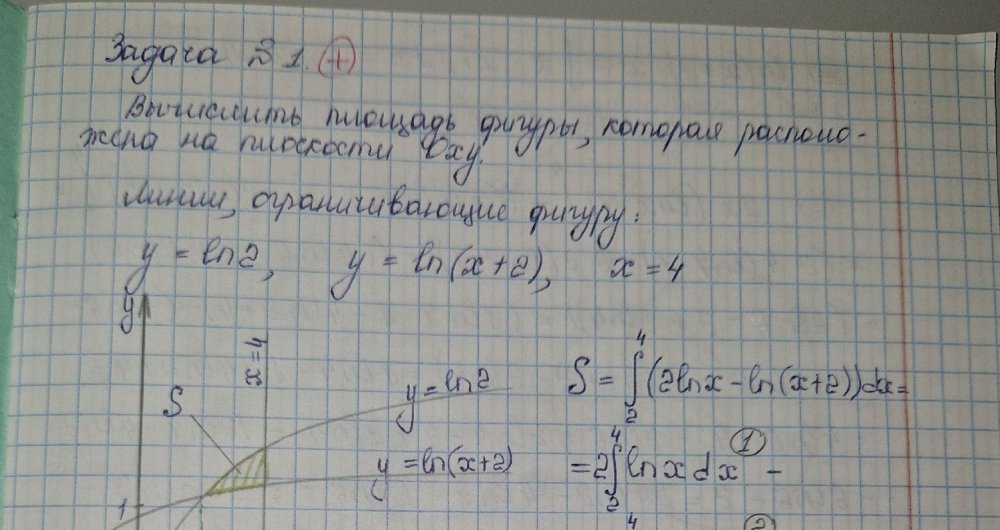 Задача № 1. +
Вычислить площадь фигуры, которая располо-
жена на плоскости Oxy.
Линии, ограничивающие фигуру:
y = ln2, y = ln(x+2), x = 4
y
x=4
S
y=ln2
y=ln(x+2)
1
S = ∫₂⁴ (2lnx - ln(x+2))dx =
= 2∫₂⁴ lnxdx ① -
4 ②